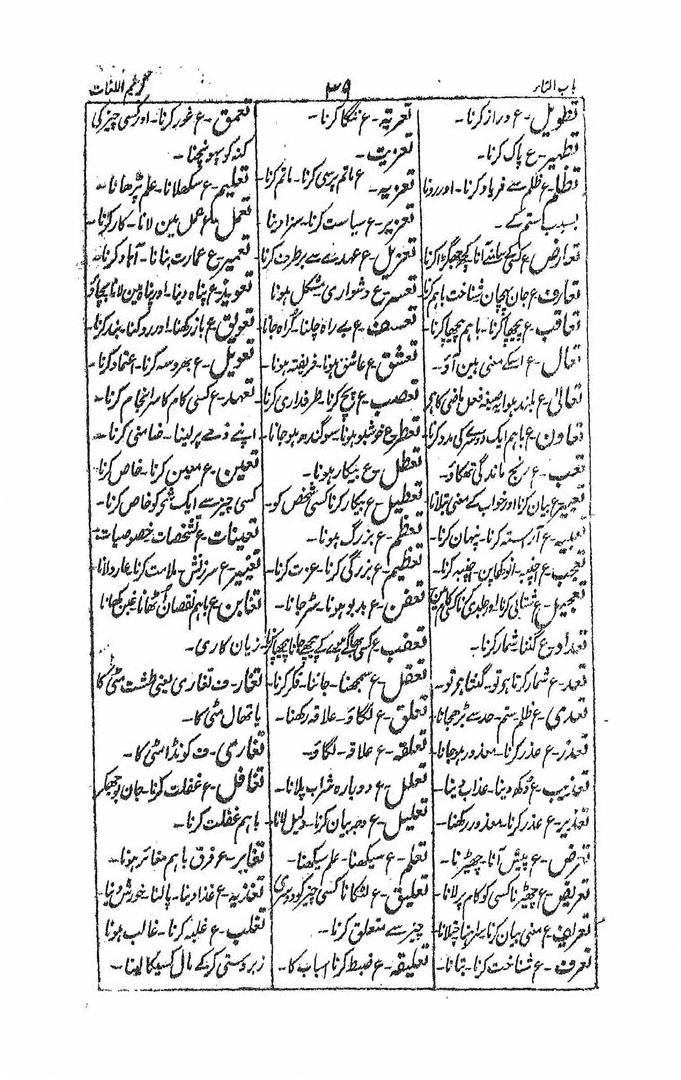 باب التاء
۳۹
کریم اللغات
تطویل۔ ع دراز کرنا۔
تطہیر۔ ع پاک کرنا۔
تظلم۔ ع ظلم سے فریاد کرنا۔ اور رونا
بسبب ستم کے۔
تعارض ع کسی کے سامنے آنا کچھ جھگڑا کرنا
تعارف ع جان پہچان شناخت باہم کرنا
تعاقب۔ ع پیچھا کرنا۔ باہم پیچھا کرنا
تعال۔ ع اسکے معنی ہیں آؤ۔
تعالیٰ۔ ع بلند ہوا یہ صیغہ فعل ماضی کا ہے
تعاون۔ ع باہم ایک دوسرے کی مدد کرنا
تعب۔ ع رنج ماندگی تھکاؤ۔
تعبیر ع بیان کرنا اور خواب کے معنی بتلانا
تعبیہ۔ ع آراستہ کرنا۔ پنہان کرنا۔
تعجب۔ ع اچنبہ۔ انوکھاپن۔ اچنبہ کرنا۔
تعجیل ع شتابی کرنا اور جلدی کرنا کسی کام میں
تعداد۔ ع گننا شمار کرنا۔
تعد۔ ع شمار کرتا ہو تو۔ گنتا ہو تو۔
تعدی۔ ع ظلم ستم۔ حد سے بڑھ جانا۔
تعذر۔ ع عذر کرنا۔ معذور ہو جانا۔
تعذیب۔ ع دکھ دینا۔ عذاب دینا۔
تعذیر۔ ع عذر کرنا۔ معذور رکھنا۔
تعرض۔ ع پیش آنا۔ چھیڑنا۔
تعریض۔ ع چھیڑنا کسی کو کام پر لانا۔
تعریف۔ ع معنی بیان کرنا۔ سراہنا جتلانا۔
تعرف۔ ع شناخت کرنا۔ بتانا۔
تعریہ۔ ع ننگا کرنا۔
تعزیت۔
تعزیہ۔ ع ماتم پرسی کرنا۔ ماتم کرنا
تعزیر۔ ع سیاست کرنا۔ سزا دینا
تعزیل۔ ع عہدے سے برطرف کرنا
تعسر۔ ع دشواری مشکل ہونا
تعسف۔ ع بے راہ چلنا۔ گمراہ جانا
تعشق۔ ع عاشق ہونا۔ فریفتہ ہونا۔
تعصب۔ ع پچ کرنا۔ طرفداری کرنا
تعطر۔ ع خوشبو ہونا۔ سوگندھ ہو جانا۔
تعطل۔ ع بیکار ہونا۔
تعطیل۔ ع بیکار کرنا کسی شخص کو۔
تعظم۔ ع بزرگ ہونا۔
تعظیم۔ ع بزرگی کرنا۔ عزت کرنا۔
تعفن۔ ع بدبو ہونا۔ سڑ جانا۔
تعقب۔ ع کسی بھاگے ہوئے کے پیچھے جانا پیچھا کرنا
تعقل۔ ع سمجھنا۔ جاننا۔ فکر کرنا۔
تعلق۔ ع لگاؤ۔ علاقہ رکھنا۔
تعلقہ۔ ع علاقہ۔ لگاؤ۔
تعلل۔ ع دوبارہ شراب پلانا۔
تعلیل۔ ع وجہ بیان کرنا۔ دلیل لانا۔
تعلم۔ ع سیکھنا۔ علم سیکھنا۔
تعلیق۔ ع لٹکانا کسی چیز کو دوسری
چیز سے متعلق کرنا۔
تعلیقہ۔ ع ضبط کرنا اسباب کا۔
تعمق۔ ع غور کرنا۔ اور کسی چیز کی
کنہ کو پہونچنا۔
تعلیم۔ ع سکھلانا۔ علم پڑھانا۔
تعمل۔ ع عمل میں لانا۔ کار کرنا۔
تعمیر۔ ع عمارت بنانا۔ آباد کرنا۔
تعویذ۔ ع پناہ دینا۔ اور پناہ میں لانا بچاؤ
تعویق۔ ع باز رکھنا۔ اور روکنا۔ بند کرنا۔
تعویل۔ ع بھروسہ کرنا۔ اعتماد کرنا۔
تعہد۔ ع کسی کام کا سرانجام کرنا۔
اپنے ذمے پر لینا۔ ضامنی کرنا۔
تعین۔ ع معین کرنا۔ خاص کرنا۔
کسی چیز سے ایک شئی کو خاص کرنا۔
تعینات۔ ع تشخصات خصوصیات۔
تعییر۔ ع سرزنش۔ ملامت کرنا۔ عار دلانا
تغابن۔ ع باہم نقصان اٹھانا غبن کھانا
زیان کاری۔
تغار۔ ف تغاری یعنی طشت مٹی کا
یا تھال مٹی کا۔
تغاری۔ ف کونڈا مٹی کا۔
تغافل۔ ع غفلت کرنا۔ جان بوجھکر
باہم غفلت کرنا۔
تغایر۔ ع فرق باہم مغائر ہونا۔
تغذیہ۔ ع غذا دینا۔ پالنا۔ خورش دینا۔
تغلب۔ ع غلبہ کرنا۔ غالب ہونا
زبردستی کرکے مال کسیکا لینا۔